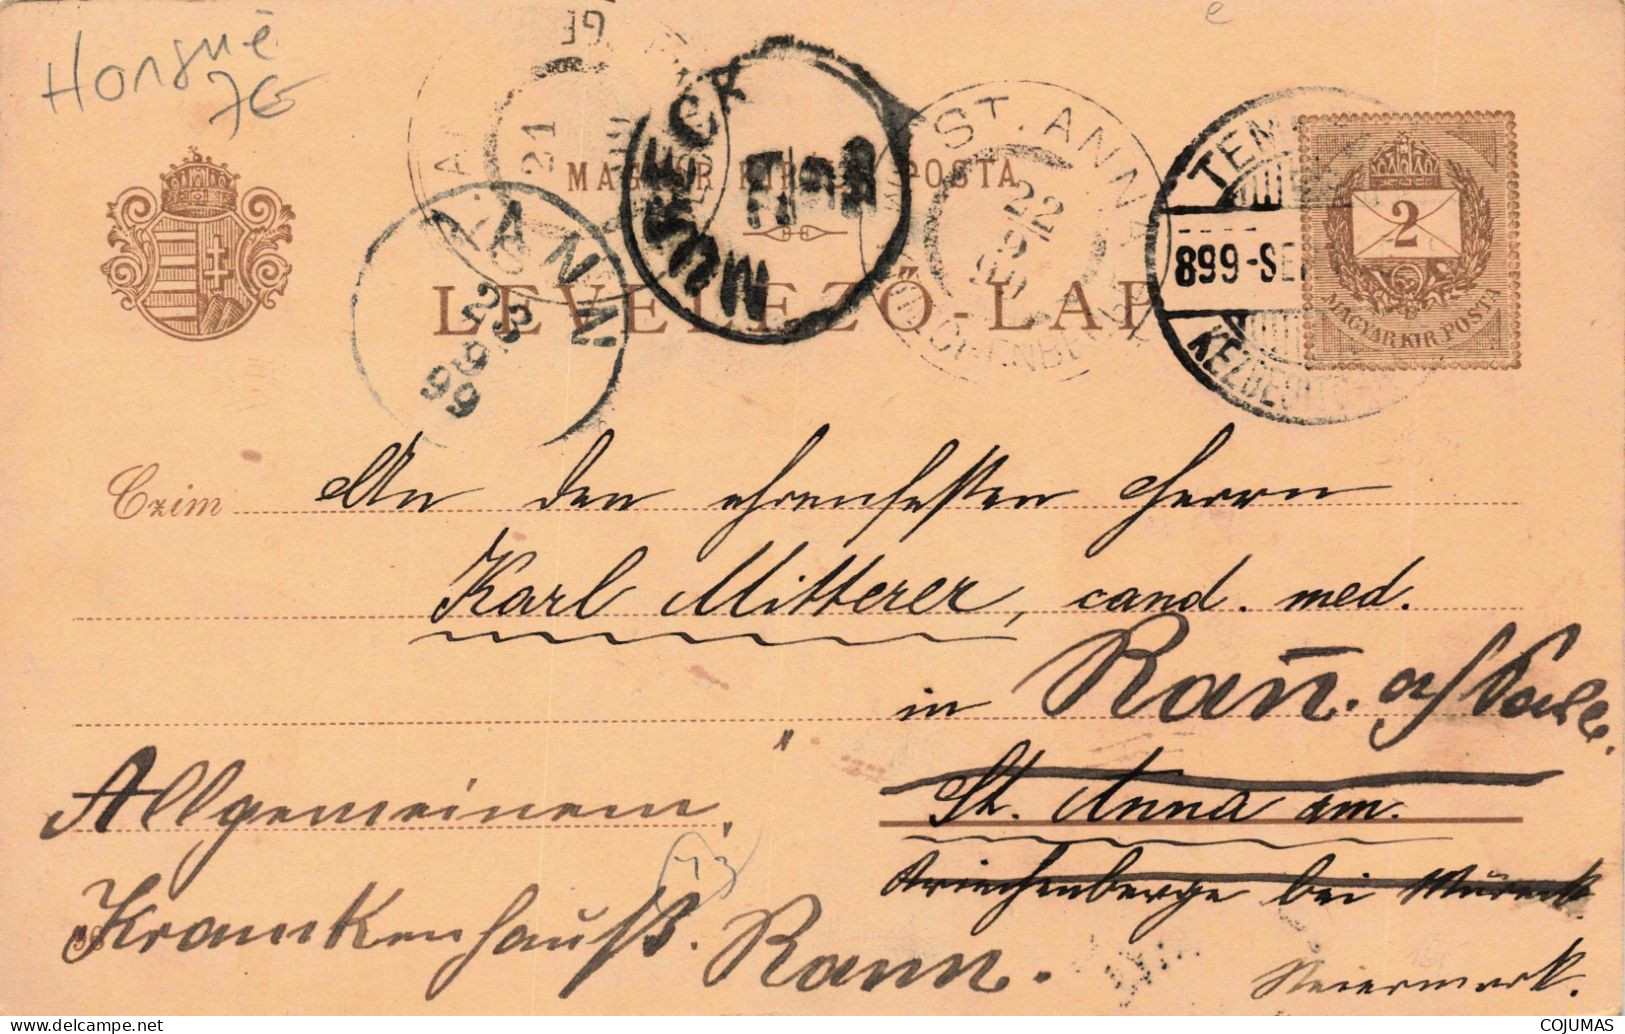 Hongrie
7€
MAGYAR KIR. POSTA
LEVELEZŐ-LAP
MURECK
ST. ANNA
22
9
99
21
RANN
23
9
99
TEM
899-SE
KÉZBESÍT
2
MAGYAR KIR. POSTA
Czim
An den ehrenfesten Herrn
Karl Mitterer, cand. med.
in Rann. a/ Save.
St. Anna am.
Kriechenberge bei Mureck
Steiermark.
Allgemeinem
Krankenhauß. Rann.
COJUMAS
delcampe.net